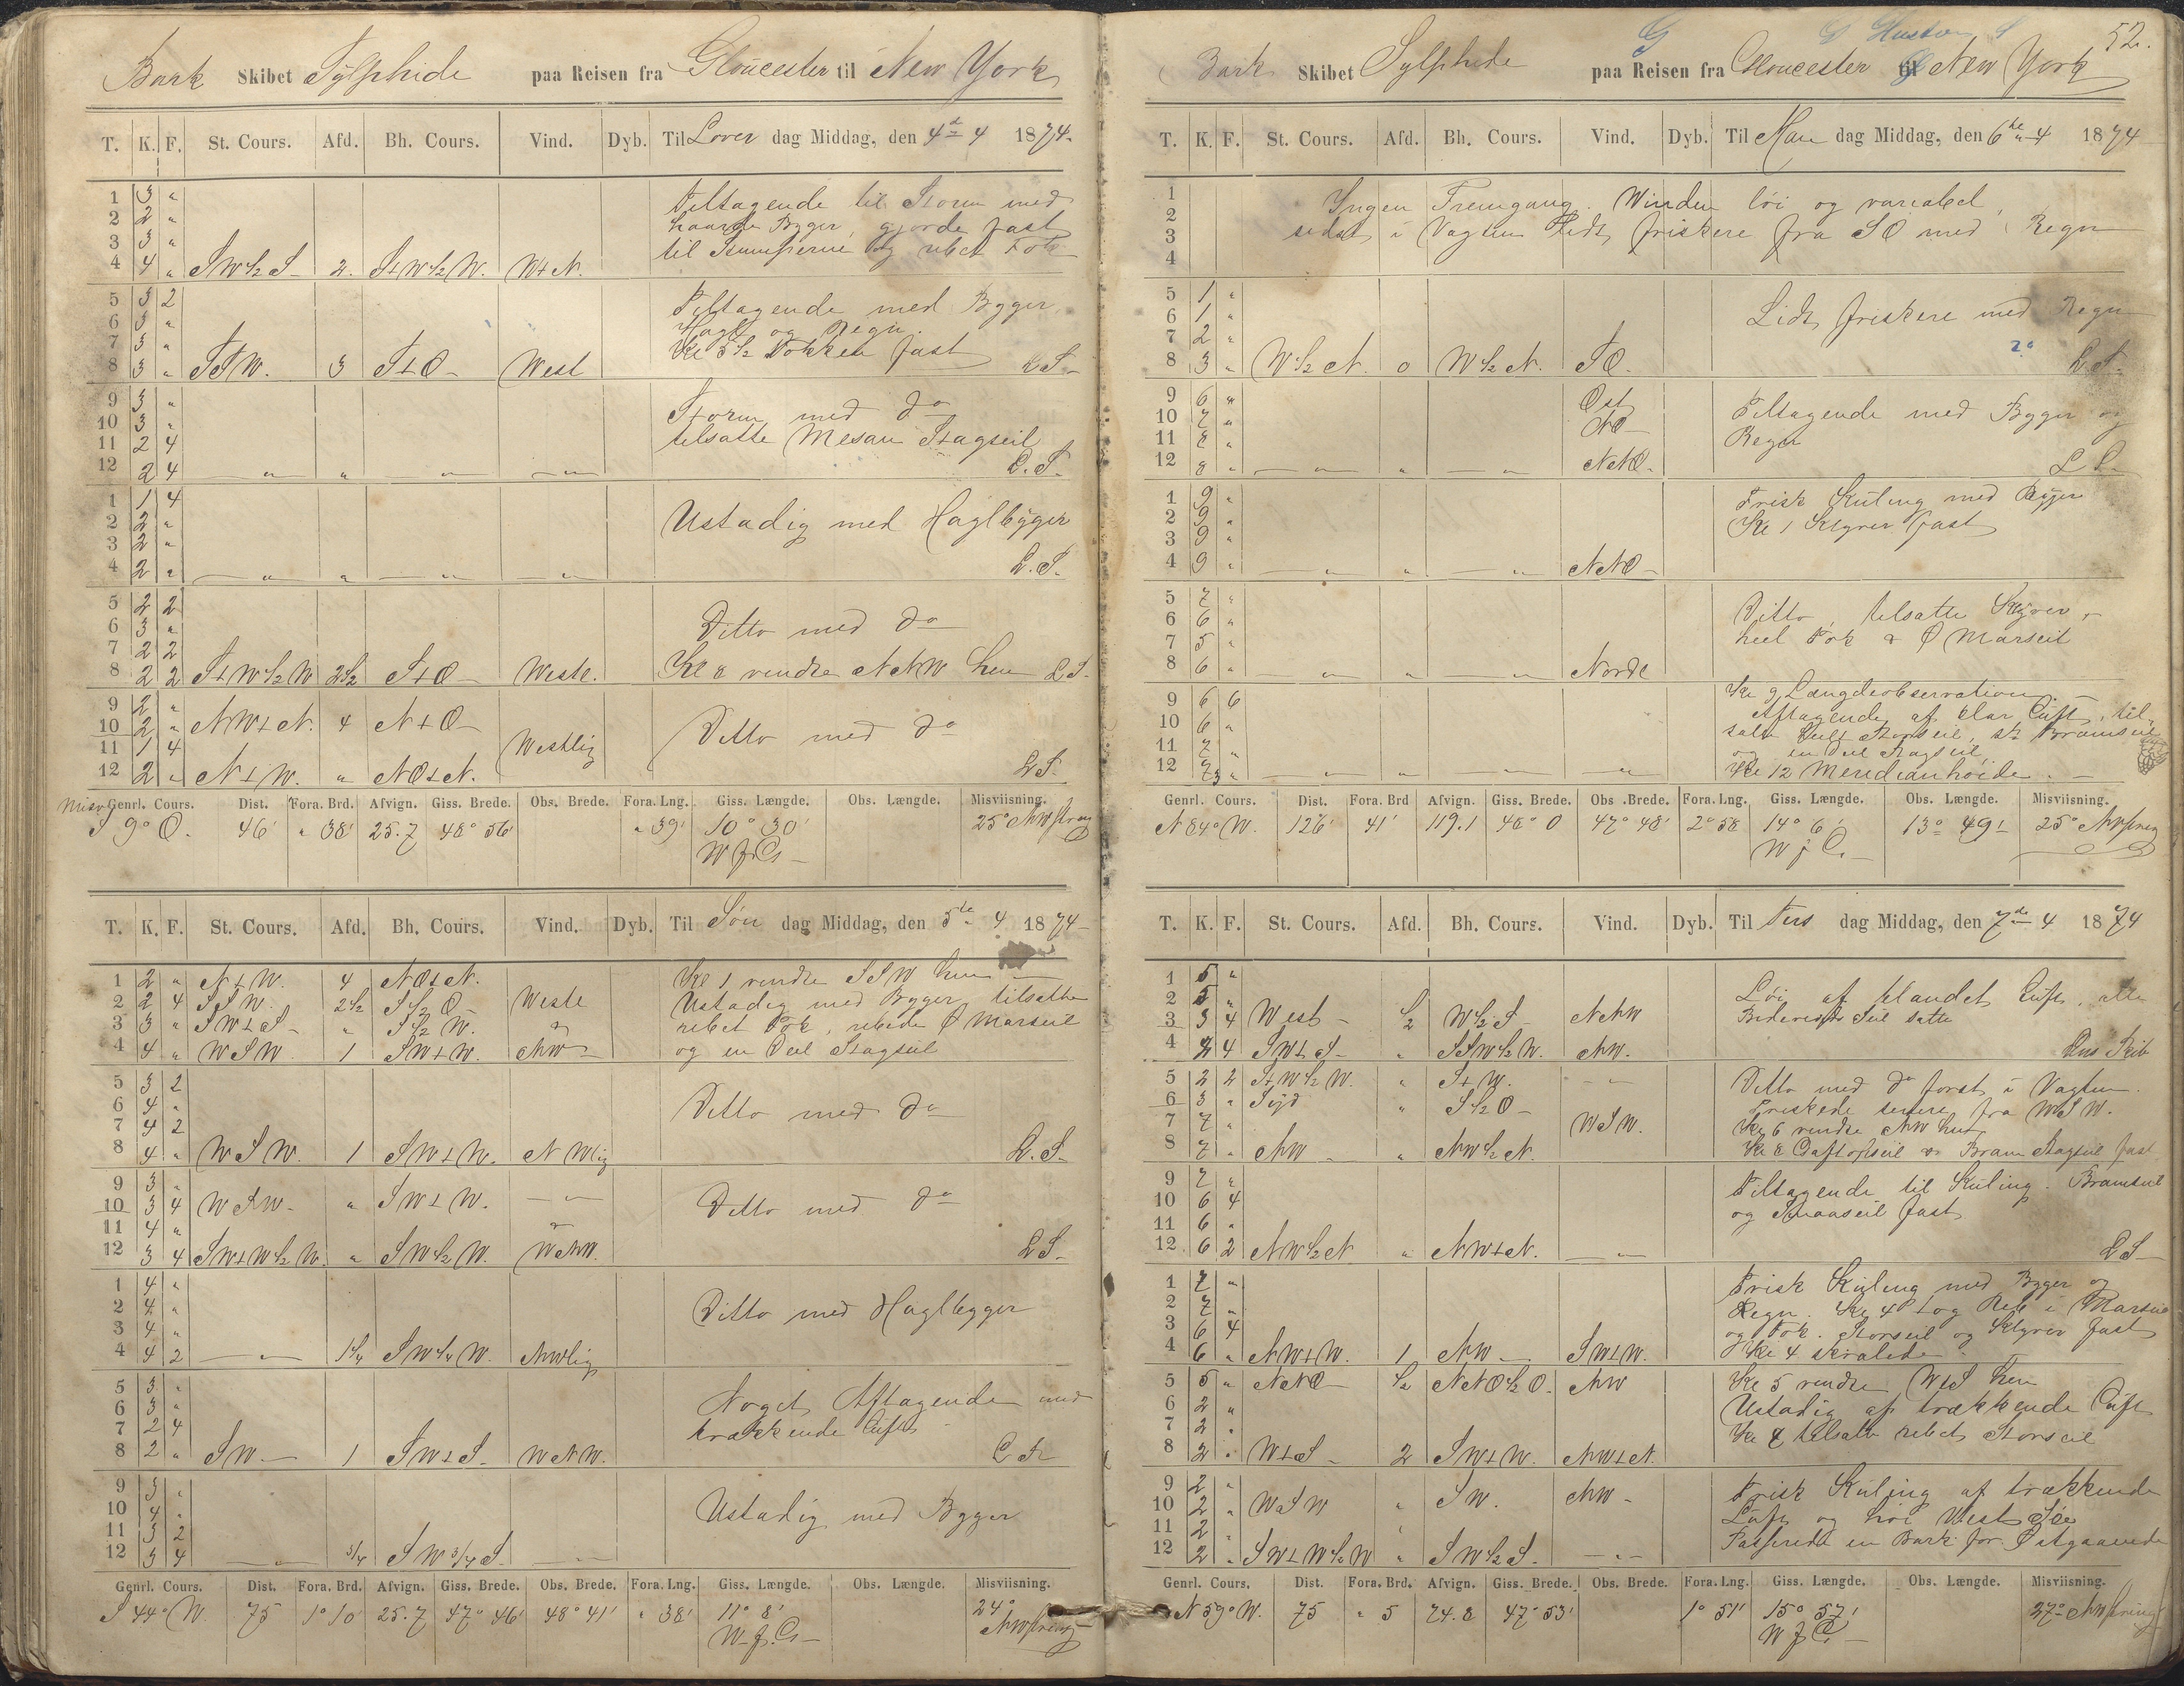 Bark Skibet Sylphide paa Reisen fra Gloucester til New York
T. K. F. St. Cours. Afd. Bh. Cours. Vind. Dyb. Til Løver dag Middag, den 4de 4 1874
1 3 "
2 2 "
3 3 "
4 4 " SW½S 2. S+W½W. W+N.
Tiltagende til Storm med
haarde Byger, gjorde fast
til Stumperne og rebet Fok
5 3 2
6 3 "
7 3 "
8 3 " SSW. 3 S+O West
Tiltagende med Byger
Hagl og Regn.
Kl 5½ Fokken fast
L S
9 3 "
10 3 "
11 2 4
12 2 4 " " " "
Storm med do
tilsatte Mesan Stagseil
L. S.
1 1 4
2 2 "
3 2 "
4 2 " " " " "
Ustadig med Haglbyger
L. S.
5 2 2
6 3 "
7 2 2
8 2 2 S+W½W 2½ S+O Westl.
Ditto med do
Kl 8 vendte NNW hen L S.
9 2 "
10 2 " NW+N. 4 N+O
11 1 4 Westlig
12 2 " N+W. " NO+N.
Ditto med do
L S.
Genrl. Cours. Dist. Fora. Brd. Afvign. Giss. Brede. Obs. Brede. Fora. Lng. Giss. Længde. Obs. Længde. Misviisning.
S 9° O. 46' " 38' 25.7 48° 56' " 39' 10° 30' 25°
T. K. F. St. Cours. Afd. Bh. Cours. Vind. Dyb. Til Søn dag Middag, den 5te 4 1874
1 2 " N+W. 4 NO+N.
2 2 4 SSW. 2½ S½O Westl
3 3 " SW+S " S½W. "
4 4 " WSW 1 SW+W. NW
Kl 1 vendte SSW hen
Ustadig med Byger, tilsatte
rebet Fok, rebede Ø Marseil
og en Deel Stagseil
5 3 2
6 4 "
7 4 2
8 4 " WSW. 1 SW+W. NWlig
Ditto med do
L. S.
9 3 "
10 3 4 WSW " SW+W. "
11 4 "
12 3 4 SW+W½W. " SW½W. WNW.
Ditto med do
L S
1 4 "
2 4 "
3 4 "
4 4 2 " 1¼ SW¼W. NWlig
Ditto med Haglbyger
5 3 "
6 3 "
7 2 4
8 2 " SW 1 SW+S WNW.
Noget Aftagende med
trækkende Luft
9 3 "
10 4 "
11 3 2
12 3 4 " ¾ SW¾S "
Ustadig med Byger
Genrl. Cours. Dist. Fora. Brd. Afvign. Giss. Brede. Obs. Brede. Fora. Lng. Giss. Længde. Obs. Længde. Misviisning.
S 44° W. 75 1° 10' 25.7 47° 46' 48° 41' " 38' 11° 8' 24°
52.
Bark Skibet Sylphide paa Reisen fra Gloucester til New York
T. K. F. St. Cours. Afd. Bh. Cours. Vind. Dyb. Til Man dag Middag, den 6te 4 1874
1
2
3
4
Ingen Fremgang. Vinden löi og variabel,
sidst i Vagten Lidt friskere fra SO med Regn
5 1 "
6 1 "
7 2 "
8 3 " W½N. 0 W½N. SO.
Lidt friskere med Regn
L. S.
9 6 " Ost
10 7 " NO
11 8 "
12 8 " " " " NNO.
Tiltagende med Byger og
Regn
L S
1 9 "
2 9 "
3 9 "
4 9 " " " " NNO
Frisk Kuling med Byger
Kl 1 Klyver fast
5 7 "
6 6 "
7 5 "
8 6 " " " " Nordl
Ditto, tilsatte Klyver,
heel Fok & Ø Marseil
9 6 6
10 6 "
11 7 "
12 7 " " " " "
Kl 9 Længdeobservation.
Aftagende af klar Luft, til-
satte heelt Storseil, st Bramseil
og en Deel Stagseil
Kl 12 Meridianhøide.
Genrl. Cours. Dist. Fora. Brd Afvign. Giss. Brede. Obs. Brede. Fora. Lng. Giss. Længde. Obs. Længde. Misviisning.
N 84° W. 126' 41' 119.1 48° 0 47° 48' 2° 58 14° 6' 13° 49' 25°
T. K. F. St. Cours. Afd. Bh. Cours. Vind. Dyb. Til Tirs dag Middag, den 7de 4 1874
1 5 "
2 5 "
3 3 4 West ½ W½S NNW
4 2 4 SW+S " SSW½W. NW.
Löi af blandet Luft, alle
Seil satte
5 2 2 S+W½W. " S+W. "
6 3 " Syd " S½O
7 7 " WSW.
8 7 " NW " NW½N.
Ditto med do först i Vagten.
Friskede senere fra WSW.
Kl 6 vendte NW hen
9 7 "
10 6 4
11 6 "
12 6 2 NW½N " NW+N. "
Tiltagende til Kuling. Bramseil
og Smaaseil fast
L S
1 7 "
2 7 "
3 6 4
4 6 " NW+W. 1 NW SW+W.
Frisk Kuling med Byger og
Regn. Kl 4 tog Reb i Marseil
og Fok. Storseil og Klyver fast
Kl 4 skralede
5 5 " NNO ½ NNO½O. NW
6 2 "
7 2 "
8 2 " W+S 2 SW+W. NW+N.
Kl 5 vendte W+S hen
Ustadig af trækkende Luft
tilsatte rebet Storseil
9 2 "
10 2 " WSW " SW. NW
11 2 "
12 2 " SW+W½W " SW½S. "
Frisk Kuling af trækkende
Luft og høi Vest Søe
Passerede en Bark for Østgaaende
Genrl. Cours. Dist. Fora. Brd. Afvign. Giss. Brede. Obs. Brede. Fora. Lng. Giss. Længde. Obs. Længde. Misviisning.
N 59° W. 75 " 5 74.8 47° 53' 1° 51' 15° 57' 27°